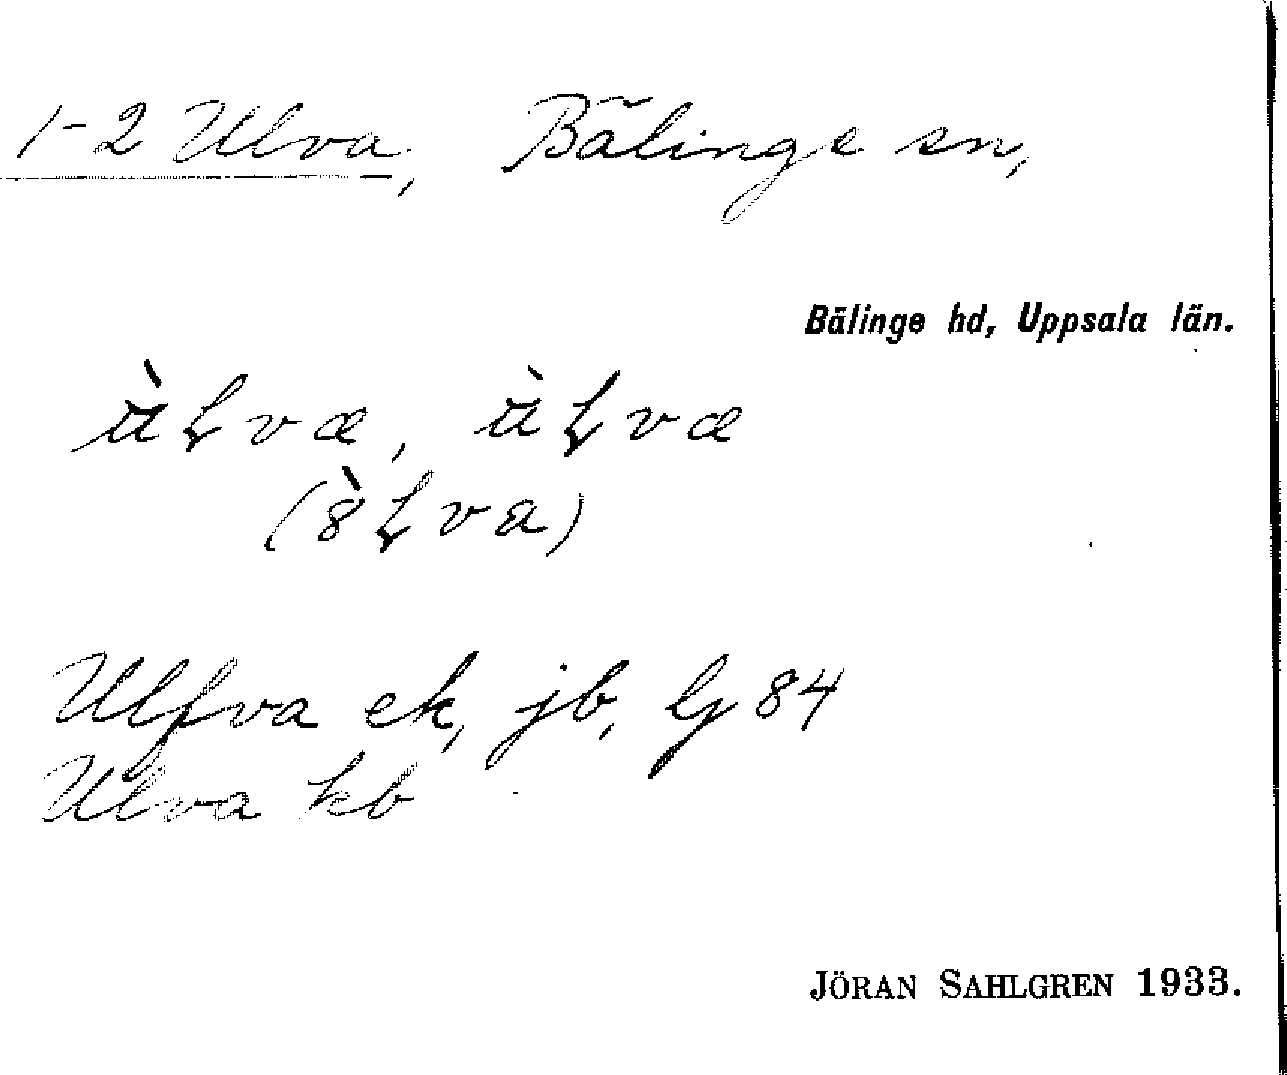 1-2 Ulva, Bälinge sn,
Bälinge hd, Uppsala län.
Ulfva ek, jb, lg 84
Ulva kb
JÖRAN SAHLGREN 1933.